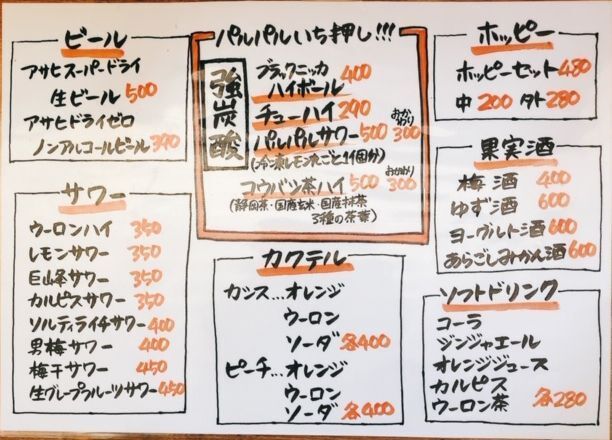 ビール
アサヒスーパードライ
生ビール 500
アサヒドライゼロ
ノンアルコールビール 390
サワー
ウーロンハイ 350
レモンサワー 350
巨峰サワー 350
カルピスサワー 350
ソルティライチサワー 400
男梅サワー 400
梅干サワー 450
生グレープフルーツサワー 450
パルパルいち押し!!!
強炭酸
ブラックニッカ
ハイボール 400
チューハイ 290
パルパルサワー 500 おかわり 300
(冷凍レモン丸ごと1個分)
コウバシ茶ハイ 500 おかわり 300
(静岡茶・国産玄米・国産抹茶
3種の茶葉)
カクテル
カシス…オレンジ
ウーロン
ソーダ 各400
ピーチ…オレンジ
ウーロン
ソーダ 各400
ホッピー
ホッピーセット 480
中 200 外 280
果実酒
梅酒 400
ゆず酒 600
ヨーグルト酒 600
あらごしみかん酒 600
ソフトドリンク
コーラ
ジンジャエール
オレンジジュース
カルピス
ウーロン茶 各280